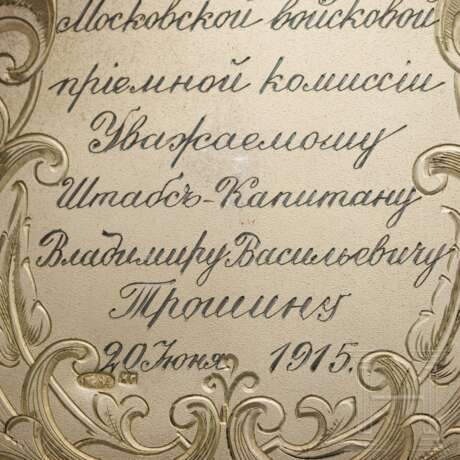 Московской войсковой
пріемной комиссіи
Уважаемому
Штабсъ-Капитану
Владимиру Васильевичу
Трошину
20 Іюня, 1915.